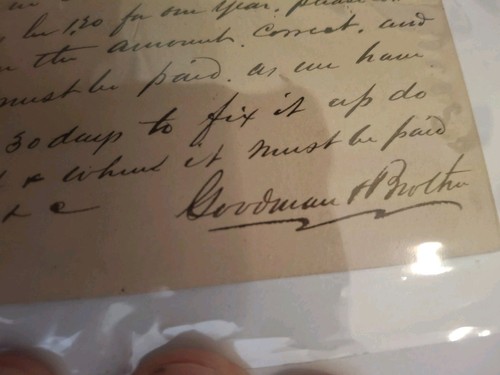 be 1,30 for one year. please
the amount. correct. and
must be paid. as we have
30 days to fix it up do
& when it must be paid
& c Goodman & Brother